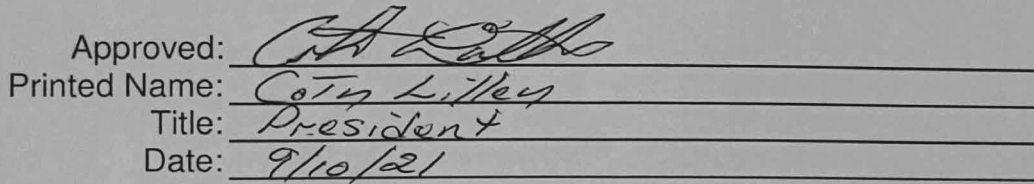 Approved:
Printed Name: Coty Lilley
Title: President
Date: 9/10/21